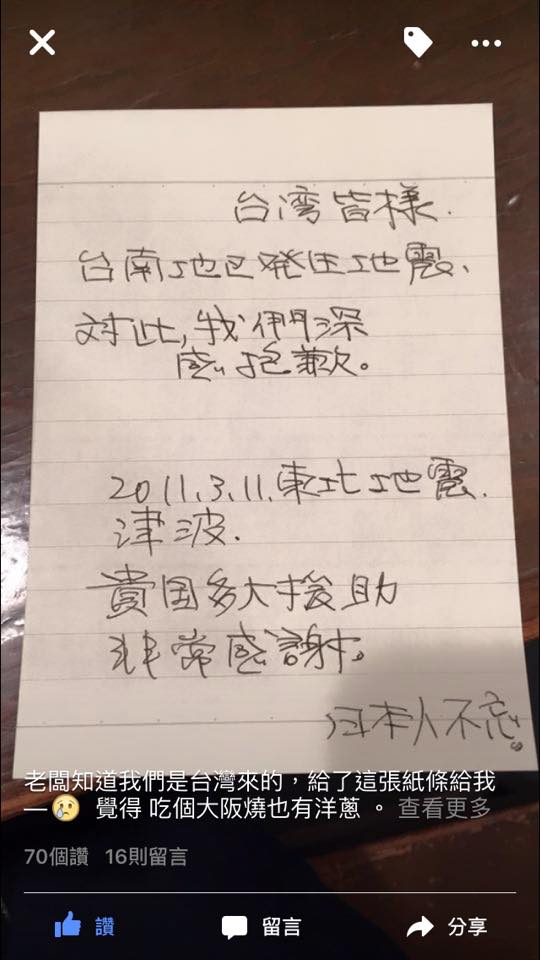 台湾皆様.
台南地区発生地震.
対此,我們深
感抱歉。
2011.3.11.東北地震.
津波.
貴国多大援助
非常感謝。
日本人不忘。
老闆知道我們是台灣來的，給了這張紙條給我
—😢 覺得 吃個大阪燒也有洋蔥 。 查看更多
70個讚 16則留言
讚 留言 分享